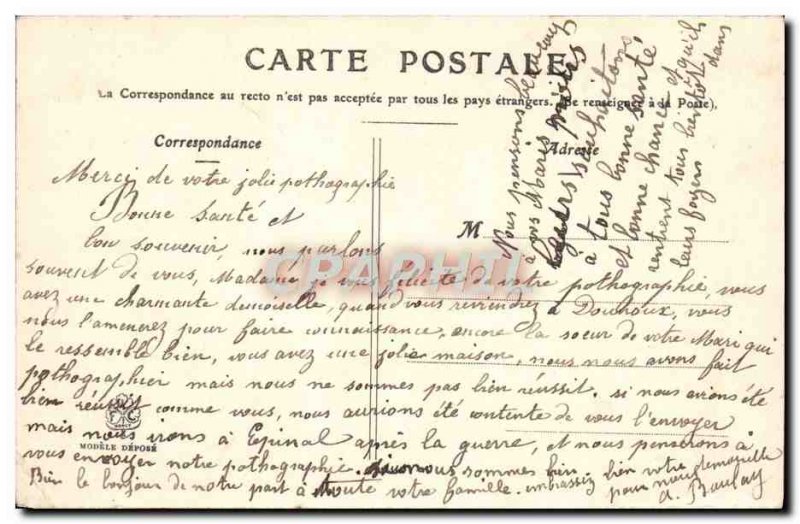 CARTE POSTALE
La Correspondance au recto n'est pas acceptée par tous les pays étrangers. (Se renseigner à la Poste).
Correspondance
Adresse
M
Merci de votre jolie pothographie
Bonne santé et
bon souvenir, nous parlons
souvent de vous, Madame je vous félicite de votre pothographie, vous
avez une charmante demoiselle, quand vous reviendrez à Douroux, vous
nous l'amenerez pour faire connaissance, encore la soeur de votre Mari qui
le ressemble bien, vous avez une jolie maison, nous nous avons fait
pothographier mais nous ne sommes pas bien réussit. si nous avions été
bien réussit comme vous, nous aurions été contente de vous l'envoyer
mais nous irons à Epinal après la guerre, et nous penserons à
vous envoyer notre pothographie. nous sommes bien
Bien le bonjour de notre part à toute votre famille. embrassez bien votre demoiselle
pour nous
Nous pensons beaucoup
à vos
souhaitons
à tous bonne santé
et bonne chance et qu'ils
rentrent tous bientôt dans
leurs foyers
MODÈLE DÉPOSÉ
CPRAPHTI